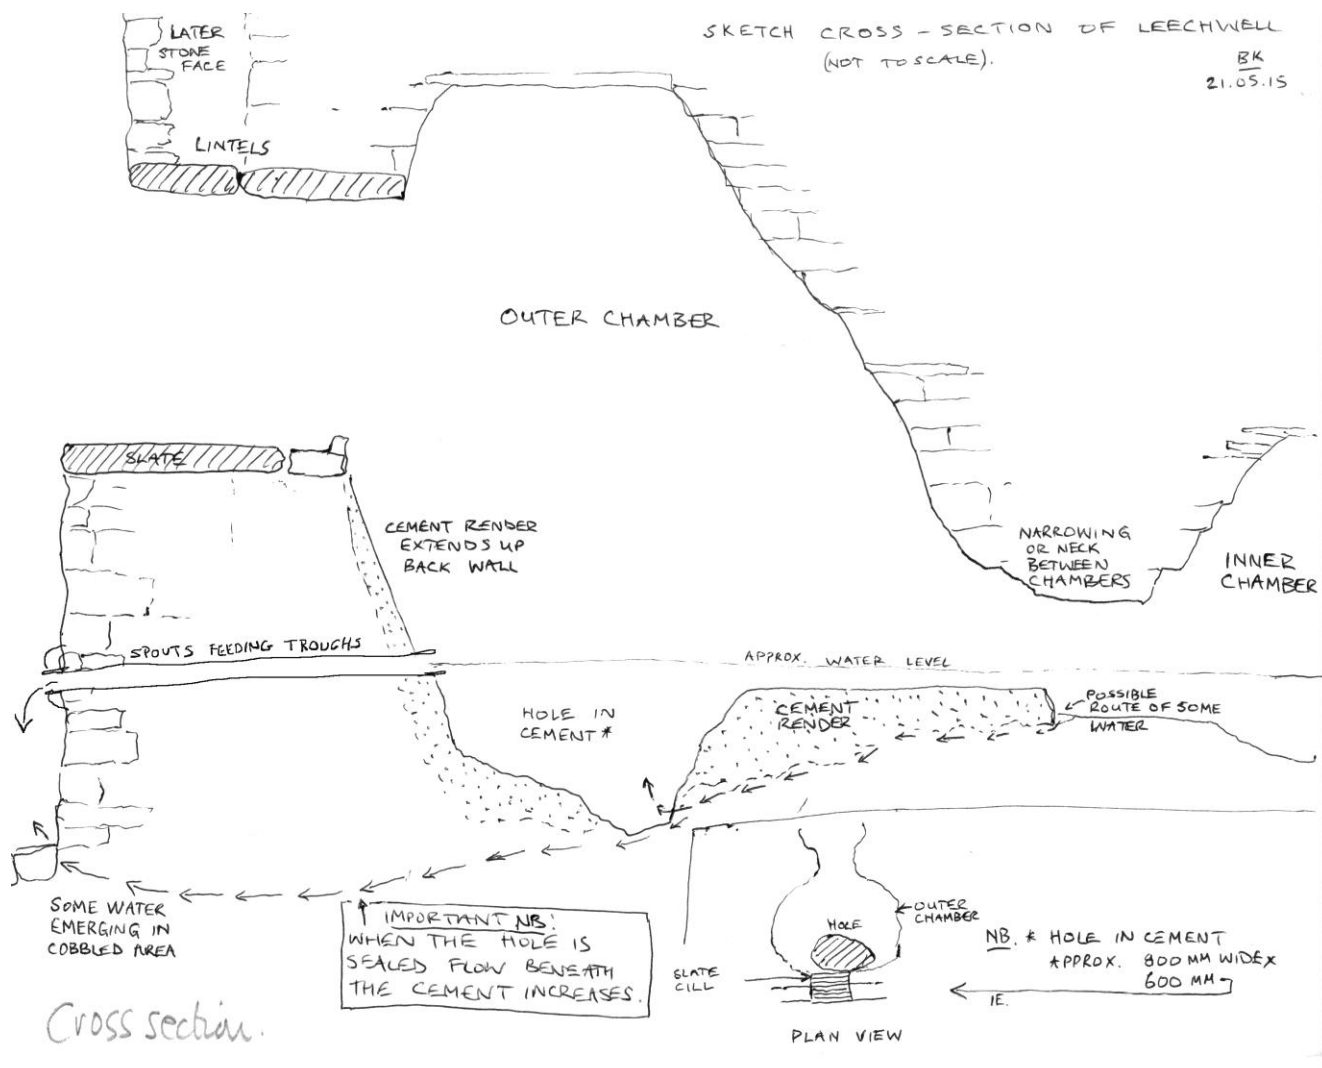 SKETCH CROSS-SECTION OF LEECHWELL
(NOT TO SCALE).
BK
21.05.15
LATER
STONE
FACE
LINTELS
OUTER CHAMBER
SLATE
CEMENT RENDER
EXTENDS UP
BACK WALL
NARROWING
OR NECK
BETWEEN
CHAMBERS
INNER
CHAMBER
SPOUTS FEEDING TROUGHS
APPROX. WATER LEVEL
HOLE IN
CEMENT *
CEMENT
RENDER
POSSIBLE
ROUTE OF SOME
WATER
SOME WATER
EMERGING IN
COBBLED AREA
IMPORTANT NB:
WHEN THE HOLE IS
SEALED FLOW BENEATH
THE CEMENT INCREASES.
OUTER
CHAMBER
HOLE
SLATE
CILL
PLAN VIEW
NB. * HOLE IN CEMENT
APPROX. 800 MM WIDE X
600 MM
IE.
Cross section.